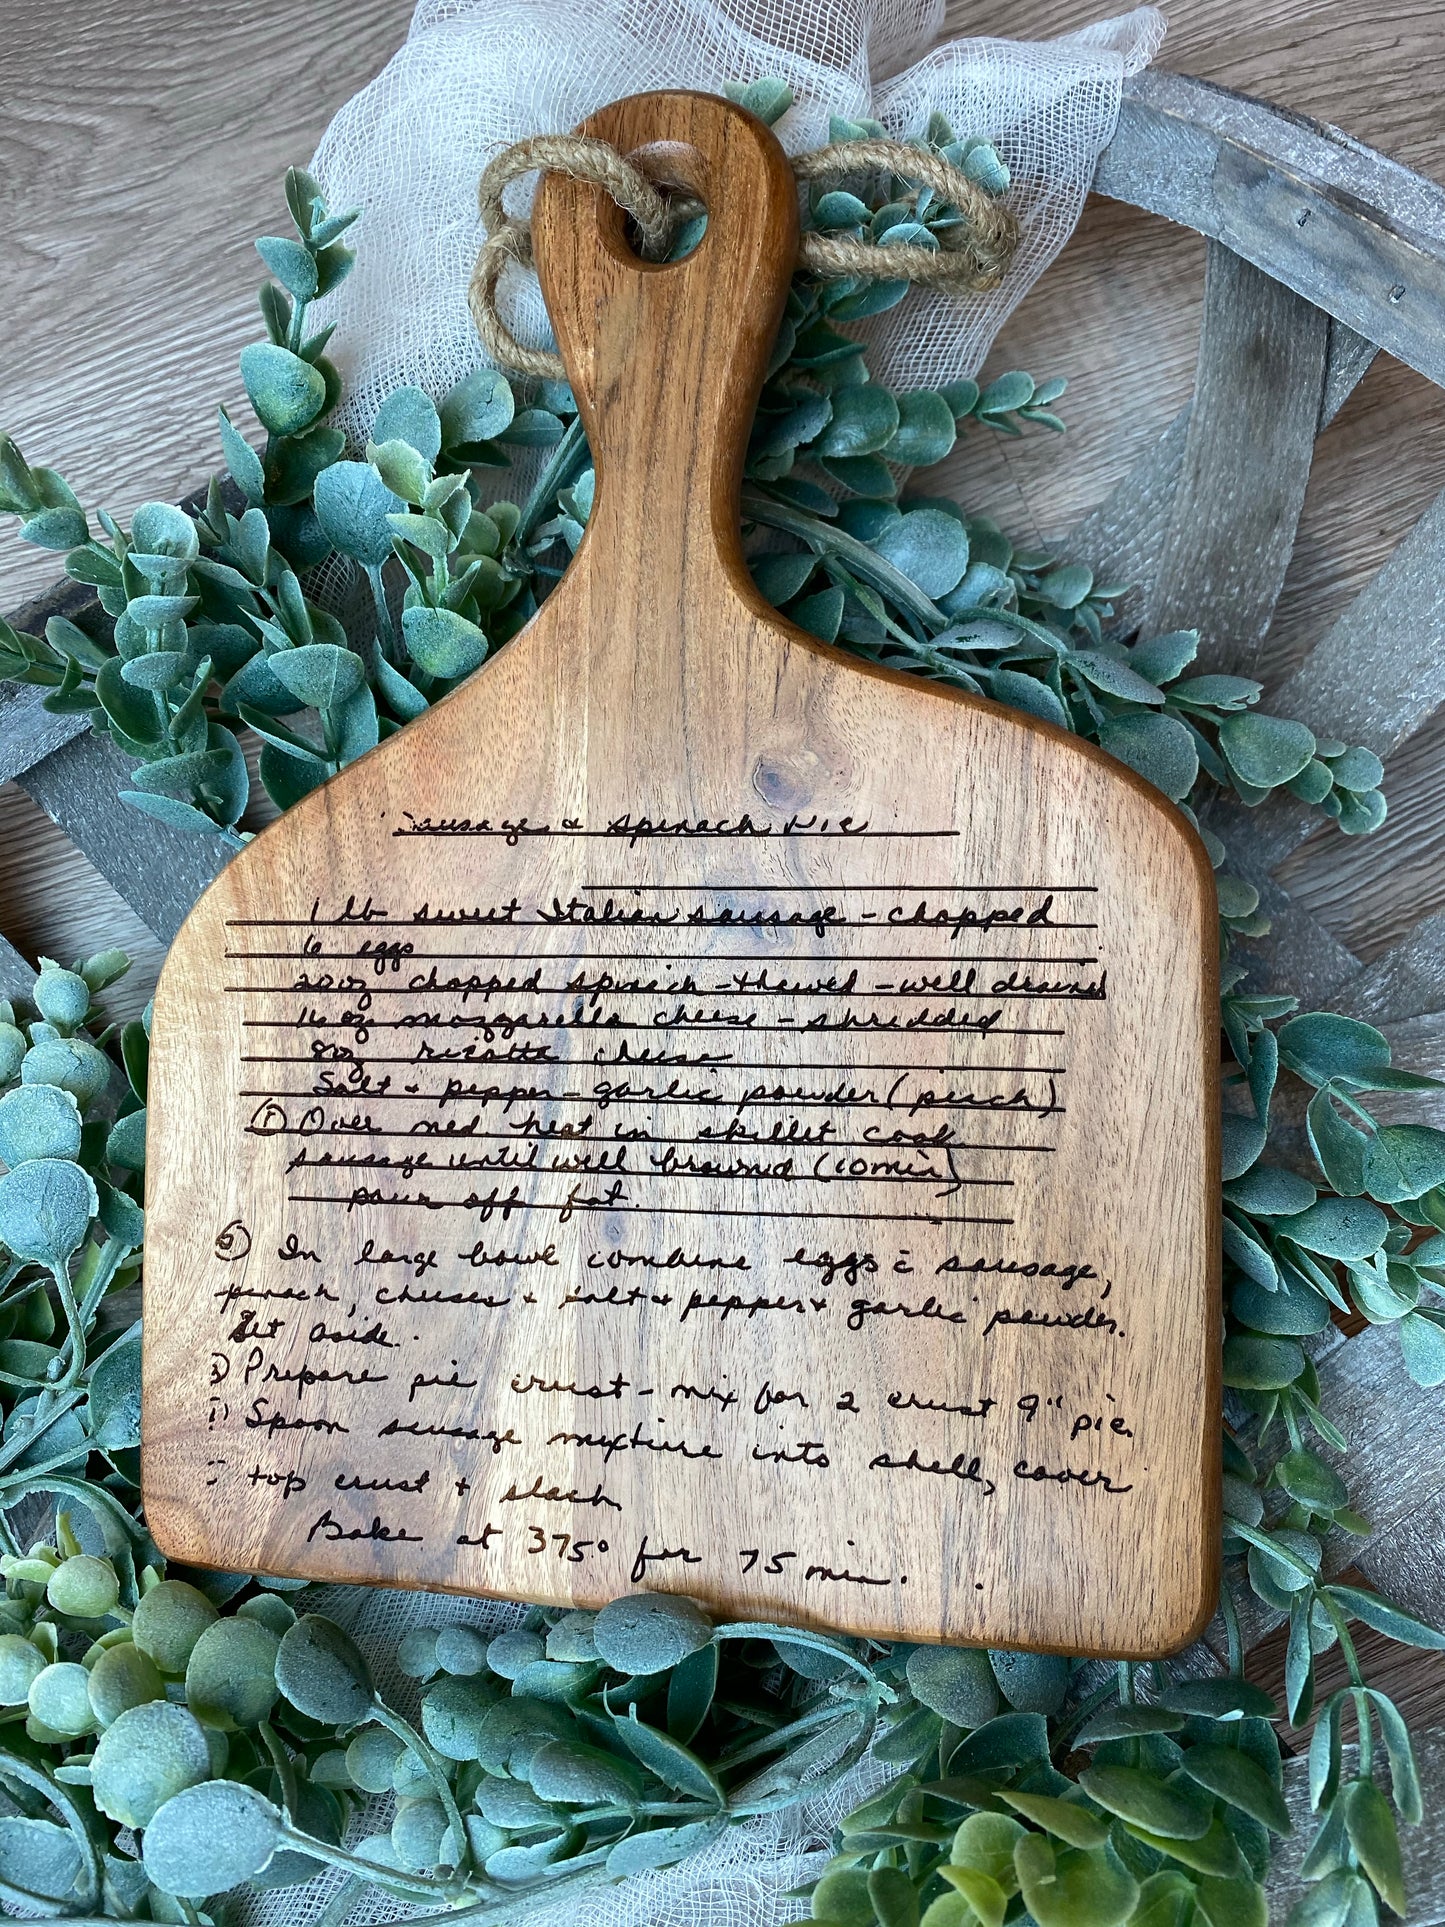 Sausage & Spinach Pie
1 lb sweet Italian sausage - chopped
6 eggs
20 oz chopped spinach - thawed - well drained
16 oz mozzarella cheese - shredded
8 oz ricotta cheese
Salt & pepper - garlic powder (pinch)
① Over med. heat in skillet cook
sausage until well browned (10 min)
pour off fat.
In large bowl combine eggs c̄ sausage,
spinach, cheeses & salt & pepper & garlic powder.
Set aside.
3) Prepare pie crust - mix for 2 crust 9" pie.
Spoon sausage mixture into shell, cover
c̄ top crust & slash
Bake at 375° for 75 min.